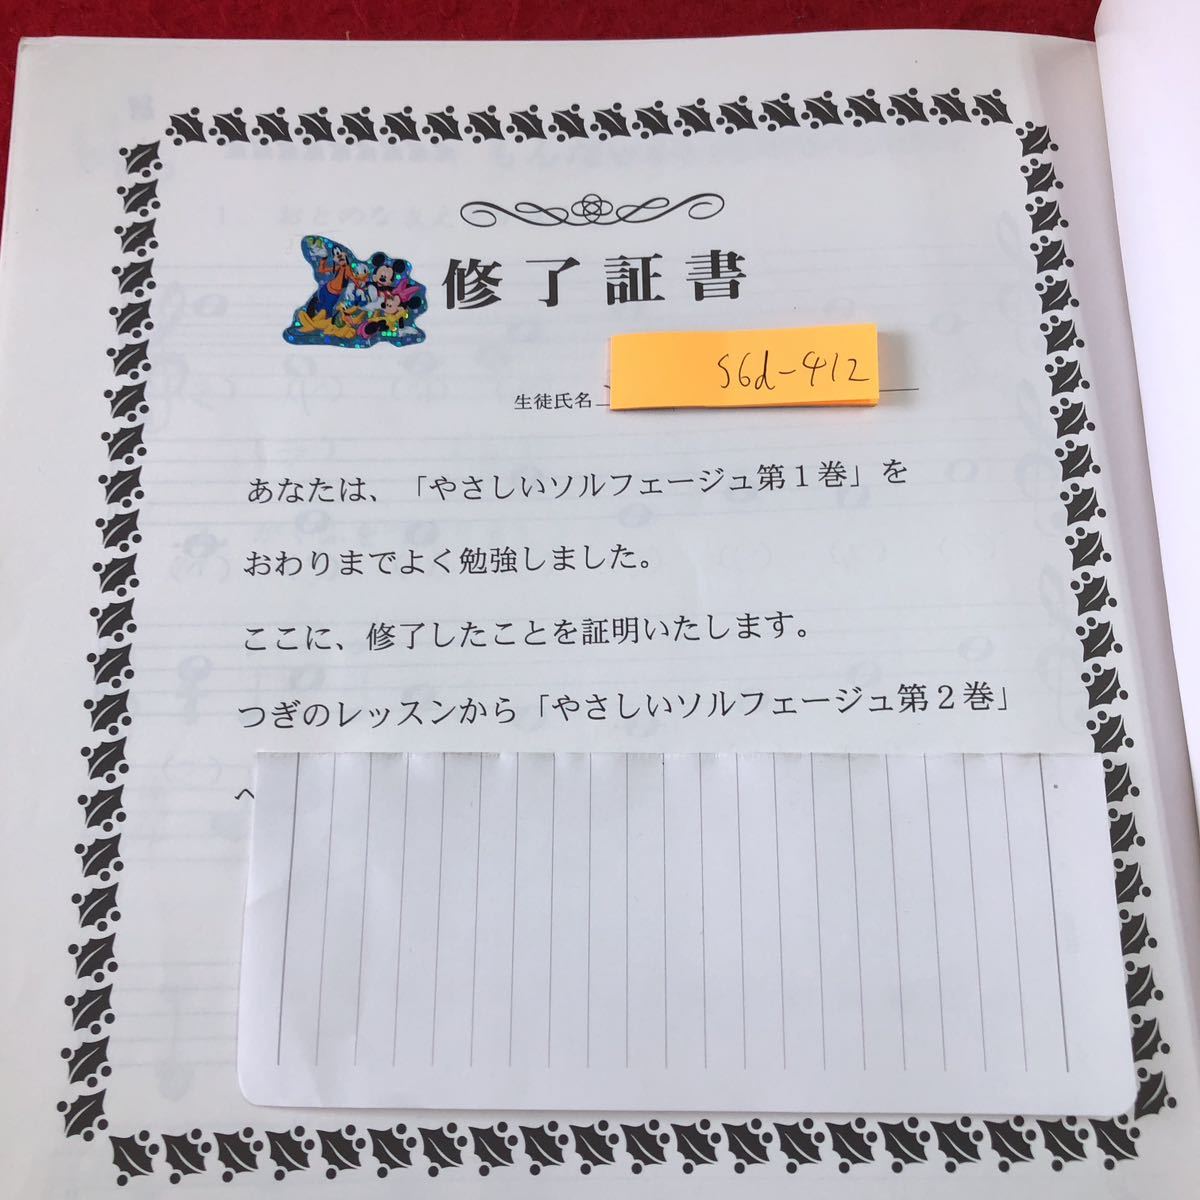 修了証書
S6d-412
生徒氏名
あなたは、「やさしいソルフェージュ第1巻」を
おわりまでよく勉強しました。
ここに、修了したことを証明いたします。
つぎのレッスンから「やさしいソルフェージュ第2巻」
へ